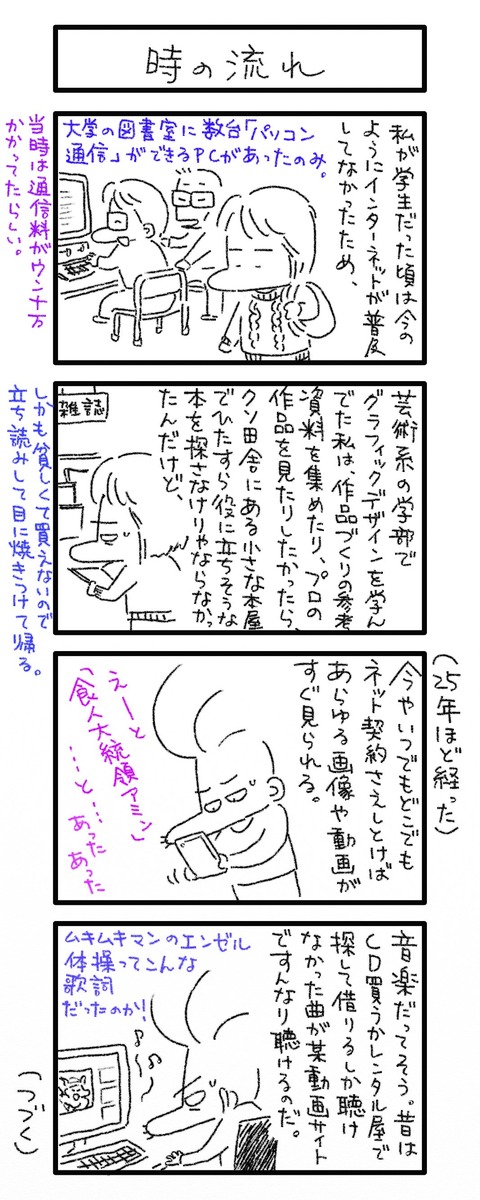 時の流れ
私が学生だった頃は今の
ようにインターネットが普及
してなかったため、
大学の図書室に数台「パソコン
通信」ができるPCがあったのみ。
当時は通信料がウン十万
かかってたらしい。
芸術系の学部で
グラフィックデザインを学ん
でた私は、作品づくりの参考
資料を集めたり、プロの
作品を見たりしたかったら、
クソ田舎にある小さな本屋
でひたすら役に立ちそうな
本を探さなけりゃならなかっ
たんだけど、
雑誌
しかも貧しくて買えないので
立ち読みして目に焼きつけて帰る。
(25年ほど経った)
今やいつでもどこでも
ネット契約さえしとけば
あらゆる画像や動画が
すぐ見られる。
えーと
「食人大統領アミン」
……と…あった
あった
音楽だってそう。昔は
CD買うかレンタル屋で
探して借りるしか聴け
なかった曲が某動画サイト
ですんなり聴けるのだ。
ムキムキマンのエンゼル
体操ってこんな
歌詞
だったのか!
(つづく)